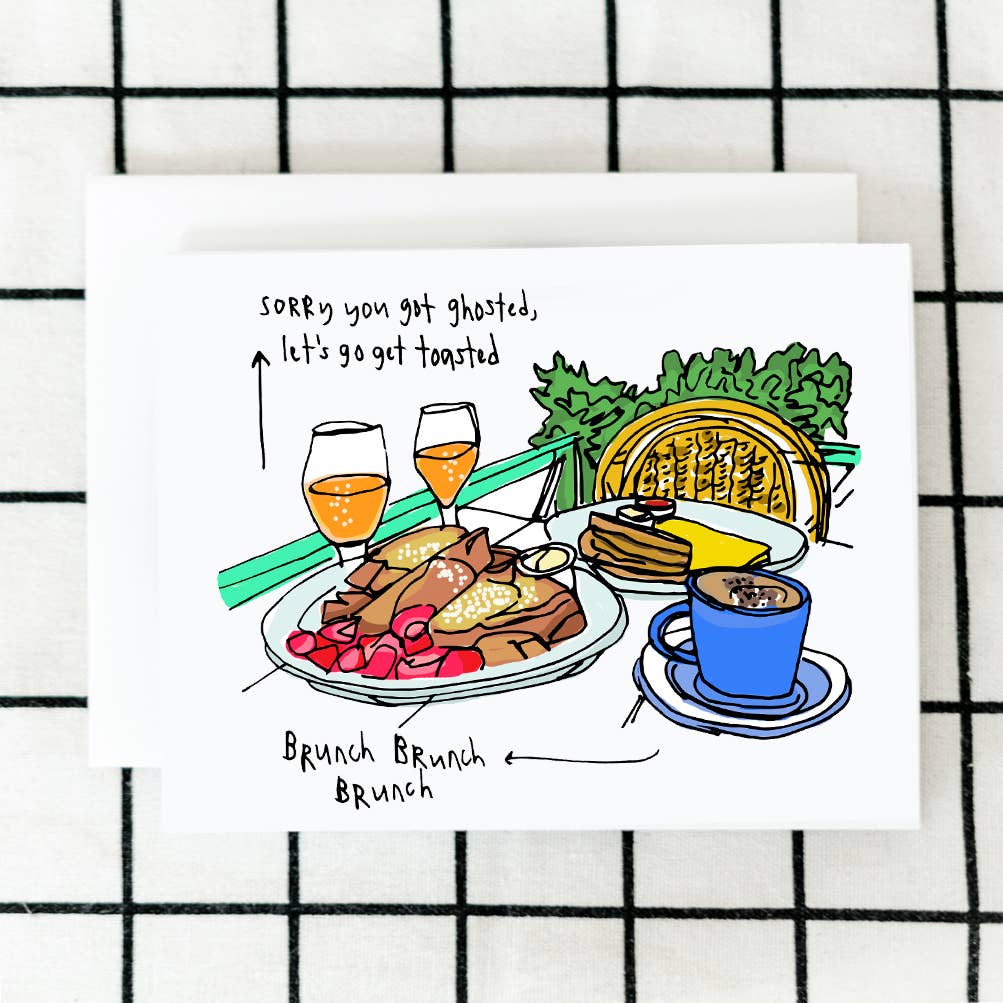 SORRy you got ghosted,
let's go get toasted
BRunch BRunch
BRunch